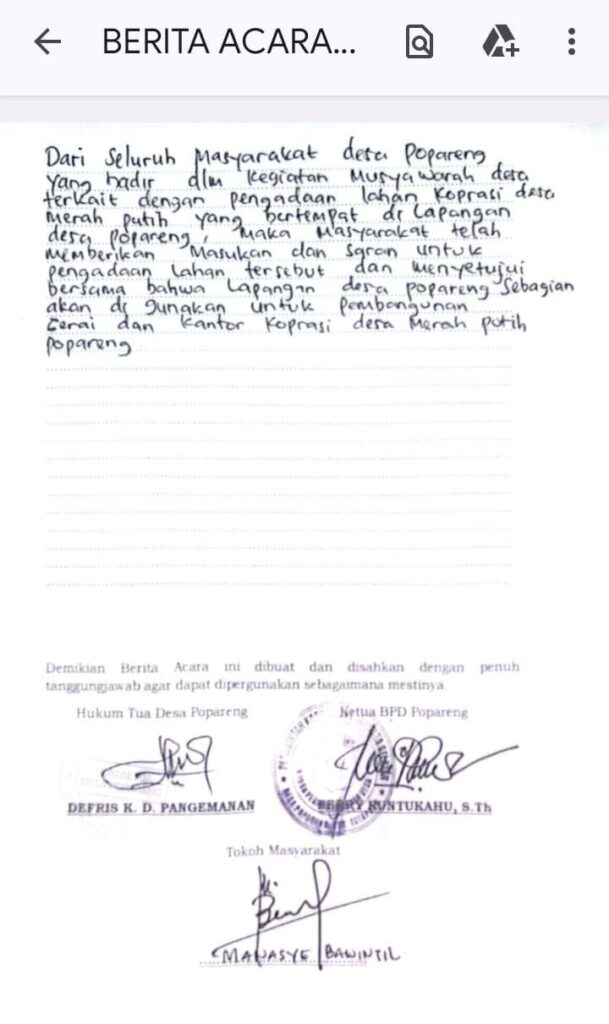 BERITA ACARA...
Dari seluruh Masyarakat desa Popareng
Yang hadir dlm kegiatan Musyawarah desa
terkait dengan pengadaan lahan Koprasi desa
Merah putih yang bertempat di Lapangan
desa popareng, Maka Masyarakat telah
Memberikan Masukan dan Saran untuk
pengadaan Lahan tersebut dan Menyetujui
bersama bahwa Lapangan desa popareng Sebagian
akan di gunakan untuk Pembangunan
Gerai dan Kantor Koprasi desa Merah Putih
Popareng
Demikian Berita Acara ini dibuat dan disahkan dengan penuh
tanggungjawab agar dapat dipergunakan sebagaimana mestinya
Hukum Tua Desa Popareng
Ketua BPD Popareng
DEFRIS K. D. PANGEMANAN
RUNTUKAHU, S.Th
Tokoh Masyarakat
MANASYE BAWINTIL